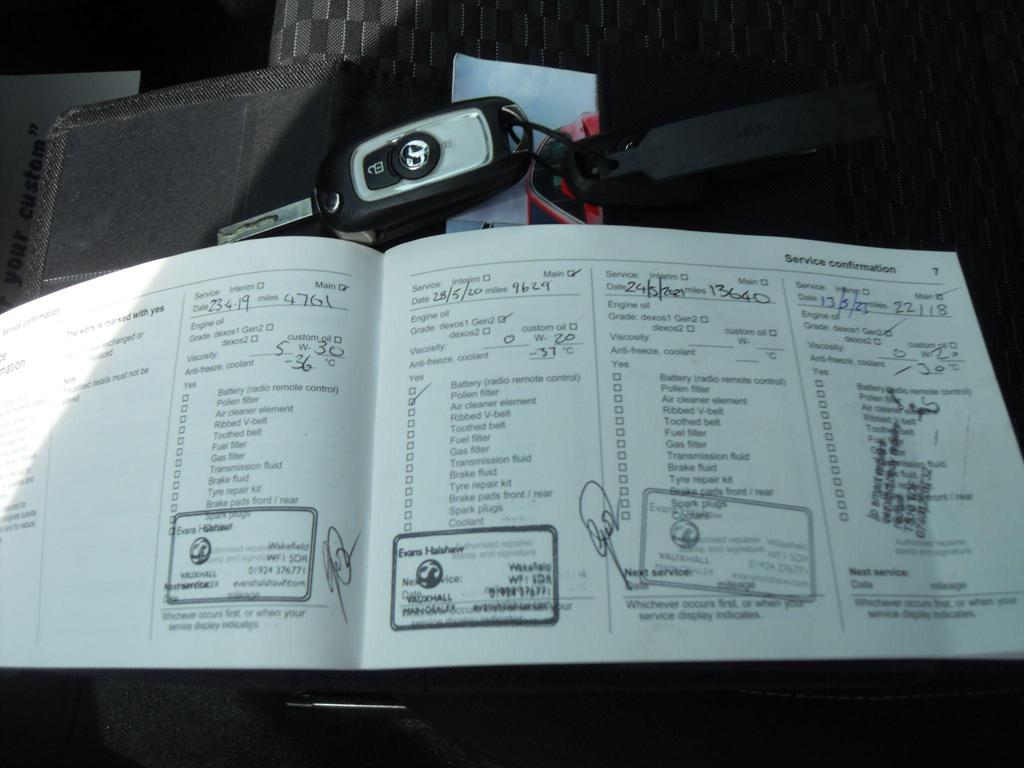 r your custom"
Service confirmation
7
The work is marked with yes
Service: Interim ☐ Main ☑
Date 23.4.19 miles 4761
Engine oil
Grade: dexos1 Gen2 ☐
dexos2 ☐ custom oil ☐
Viscosity: 5 W- 30
Anti-freeze, coolant -36 °C
Yes
☐ Battery (radio remote control)
☐ Pollen filter
☐ Air cleaner element
☐ Ribbed V-belt
☐ Toothed belt
☐ Fuel filter
☐ Gas filter
☐ Transmission fluid
☐ Brake fluid
☐ Tyre repair kit
☐ Brake pads front / rear
☐ Spark plugs
Evans Halshaw
Wakefield
WF1 5DR
01924 376771
VAUXHALL
evanshalshaw.com
Next service:
mileage
Whichever occurs first, or when your
service display indicates.
Service: Interim ☐ Main ☑
Date 28/5/20 miles 9629
Engine oil
Grade: dexos1 Gen2 ☑
dexos2 ☐ custom oil ☐
Viscosity: 0 W- 20
Anti-freeze, coolant -37 °C
Yes
Battery (radio remote control)
Pollen filter
Air cleaner element
Ribbed V-belt
Toothed belt
Fuel filter
Gas filter
Transmission fluid
Brake fluid
Tyre repair kit
Brake pads front / rear
Spark plugs
Coolant
Evans Halshaw
Wakefield
WF1 5DR
01924 376771
VAUXHALL
MAIN DEALER
service display indicates.
Service: Interim ☐ Main ☐
Date 24/5/2021 miles 13640
Engine oil
Grade: dexos1 Gen2 ☐
dexos2 ☐ custom oil ☐
Viscosity: W-
Anti-freeze, coolant °C
Yes
☐ Battery (radio remote control)
☐ Pollen filter
☐ Air cleaner element
☐ Ribbed V-belt
☐ Toothed belt
☐ Fuel filter
☐ Gas filter
☐ Transmission fluid
☐ Brake fluid
☐ Tyre repair kit
☐ Brake pads front / rear
☐ Spark plugs
Evans Halshaw
Wakefield
WF1 5DR
01924 376771
VAUXHALL
evanshalshaw.com
Next service:
mileage
Whichever occurs first, or when your
service display indicates.
Service: Interim ☐ Main ☑
miles 22118
Engine oil
Grade: dexos1 Gen2 ☑
dexos2 ☐ custom oil ☐
Viscosity: 0 W- 20
Anti-freeze, coolant °C
Yes
Battery (radio remote control)
Pollen filter
Air cleaner
Ribbed V-belt
Authorised repairer
stamp and signature
Next service:
Date mileage
Whichever occurs first, or when your
service display indicates.